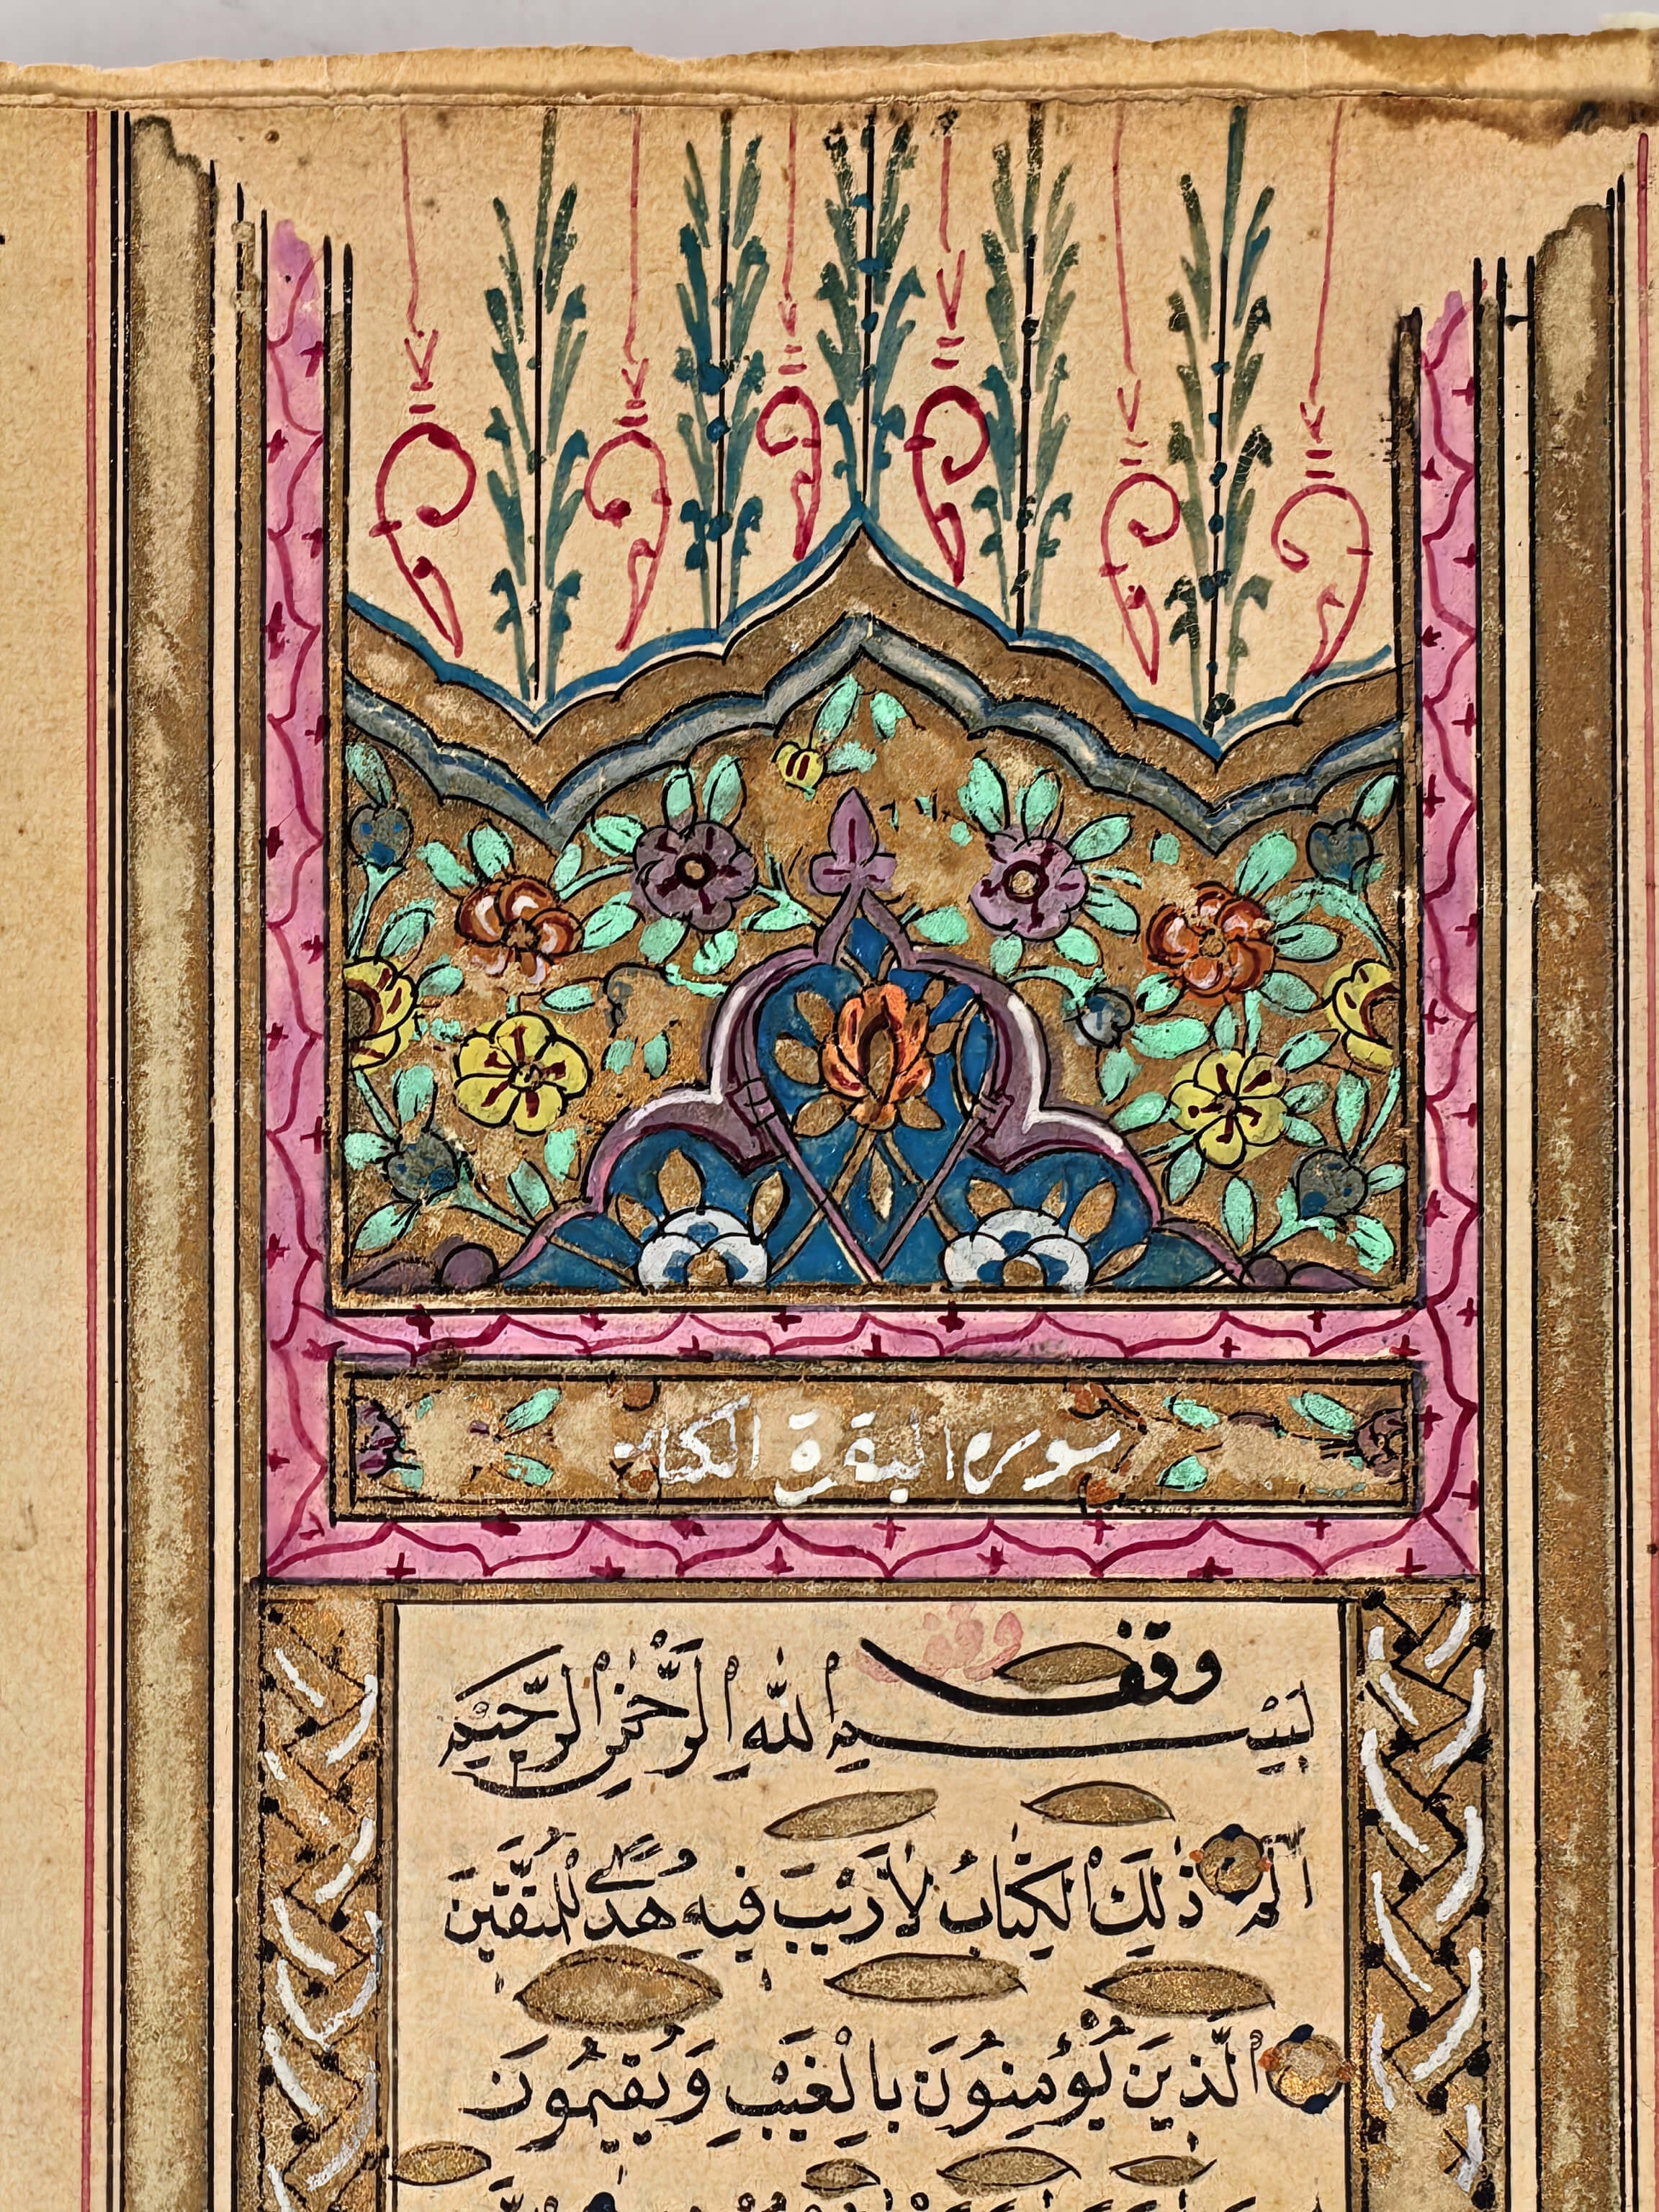 سوره البقرة الكتاب
وقف
بِسْمِ اللّٰهِ الرَّحْمٰنِ الرَّحِيْمِ
الم ذٰلِكَ الْكِتَابُ لَا رَيْبَ فِيهِ هُدًى لِلْمُتَّقِينَ
الَّذِينَ يُؤْمِنُونَ بِالْغَيْبِ وَيُقِيمُونَ